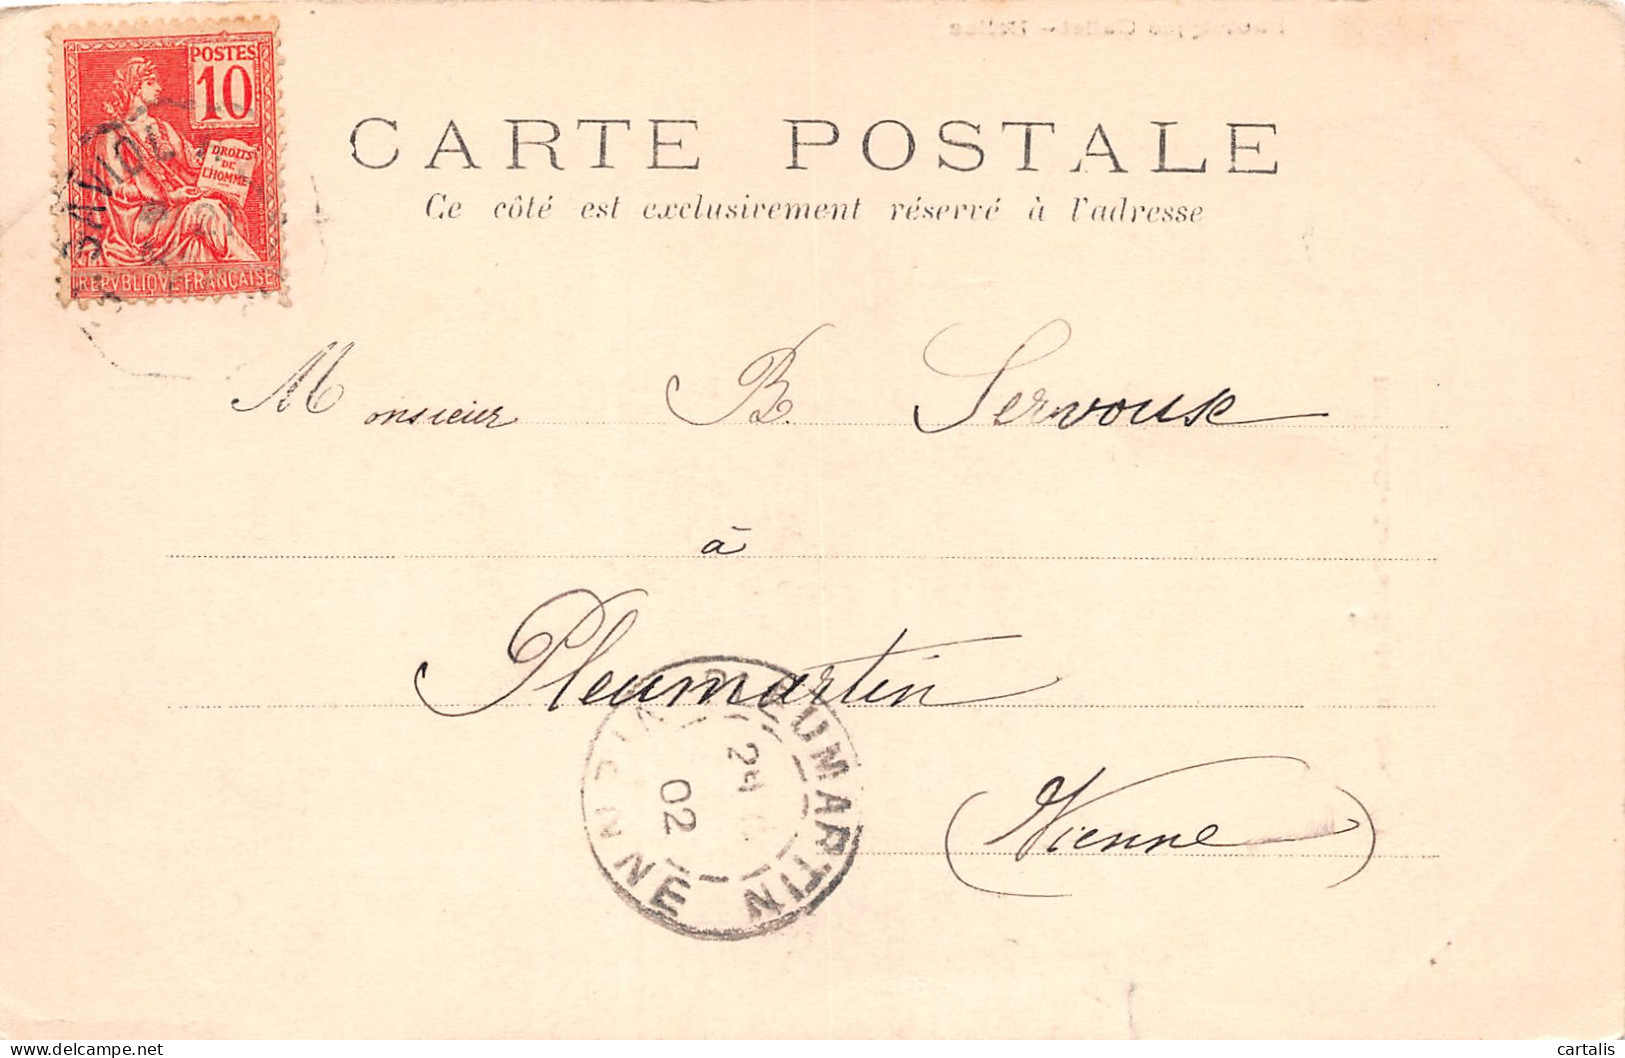 POSTES
10
DROITS
DE
L'HOMME
REPVBLIQVE FRANCAISE
CARTE POSTALE
Ce côté est exclusivement réservé à l'adresse
Monsieur B. Servoux
à
Pleumartin
(Vienne)
PLEUMARTIN
VIENNE
02
cartalis